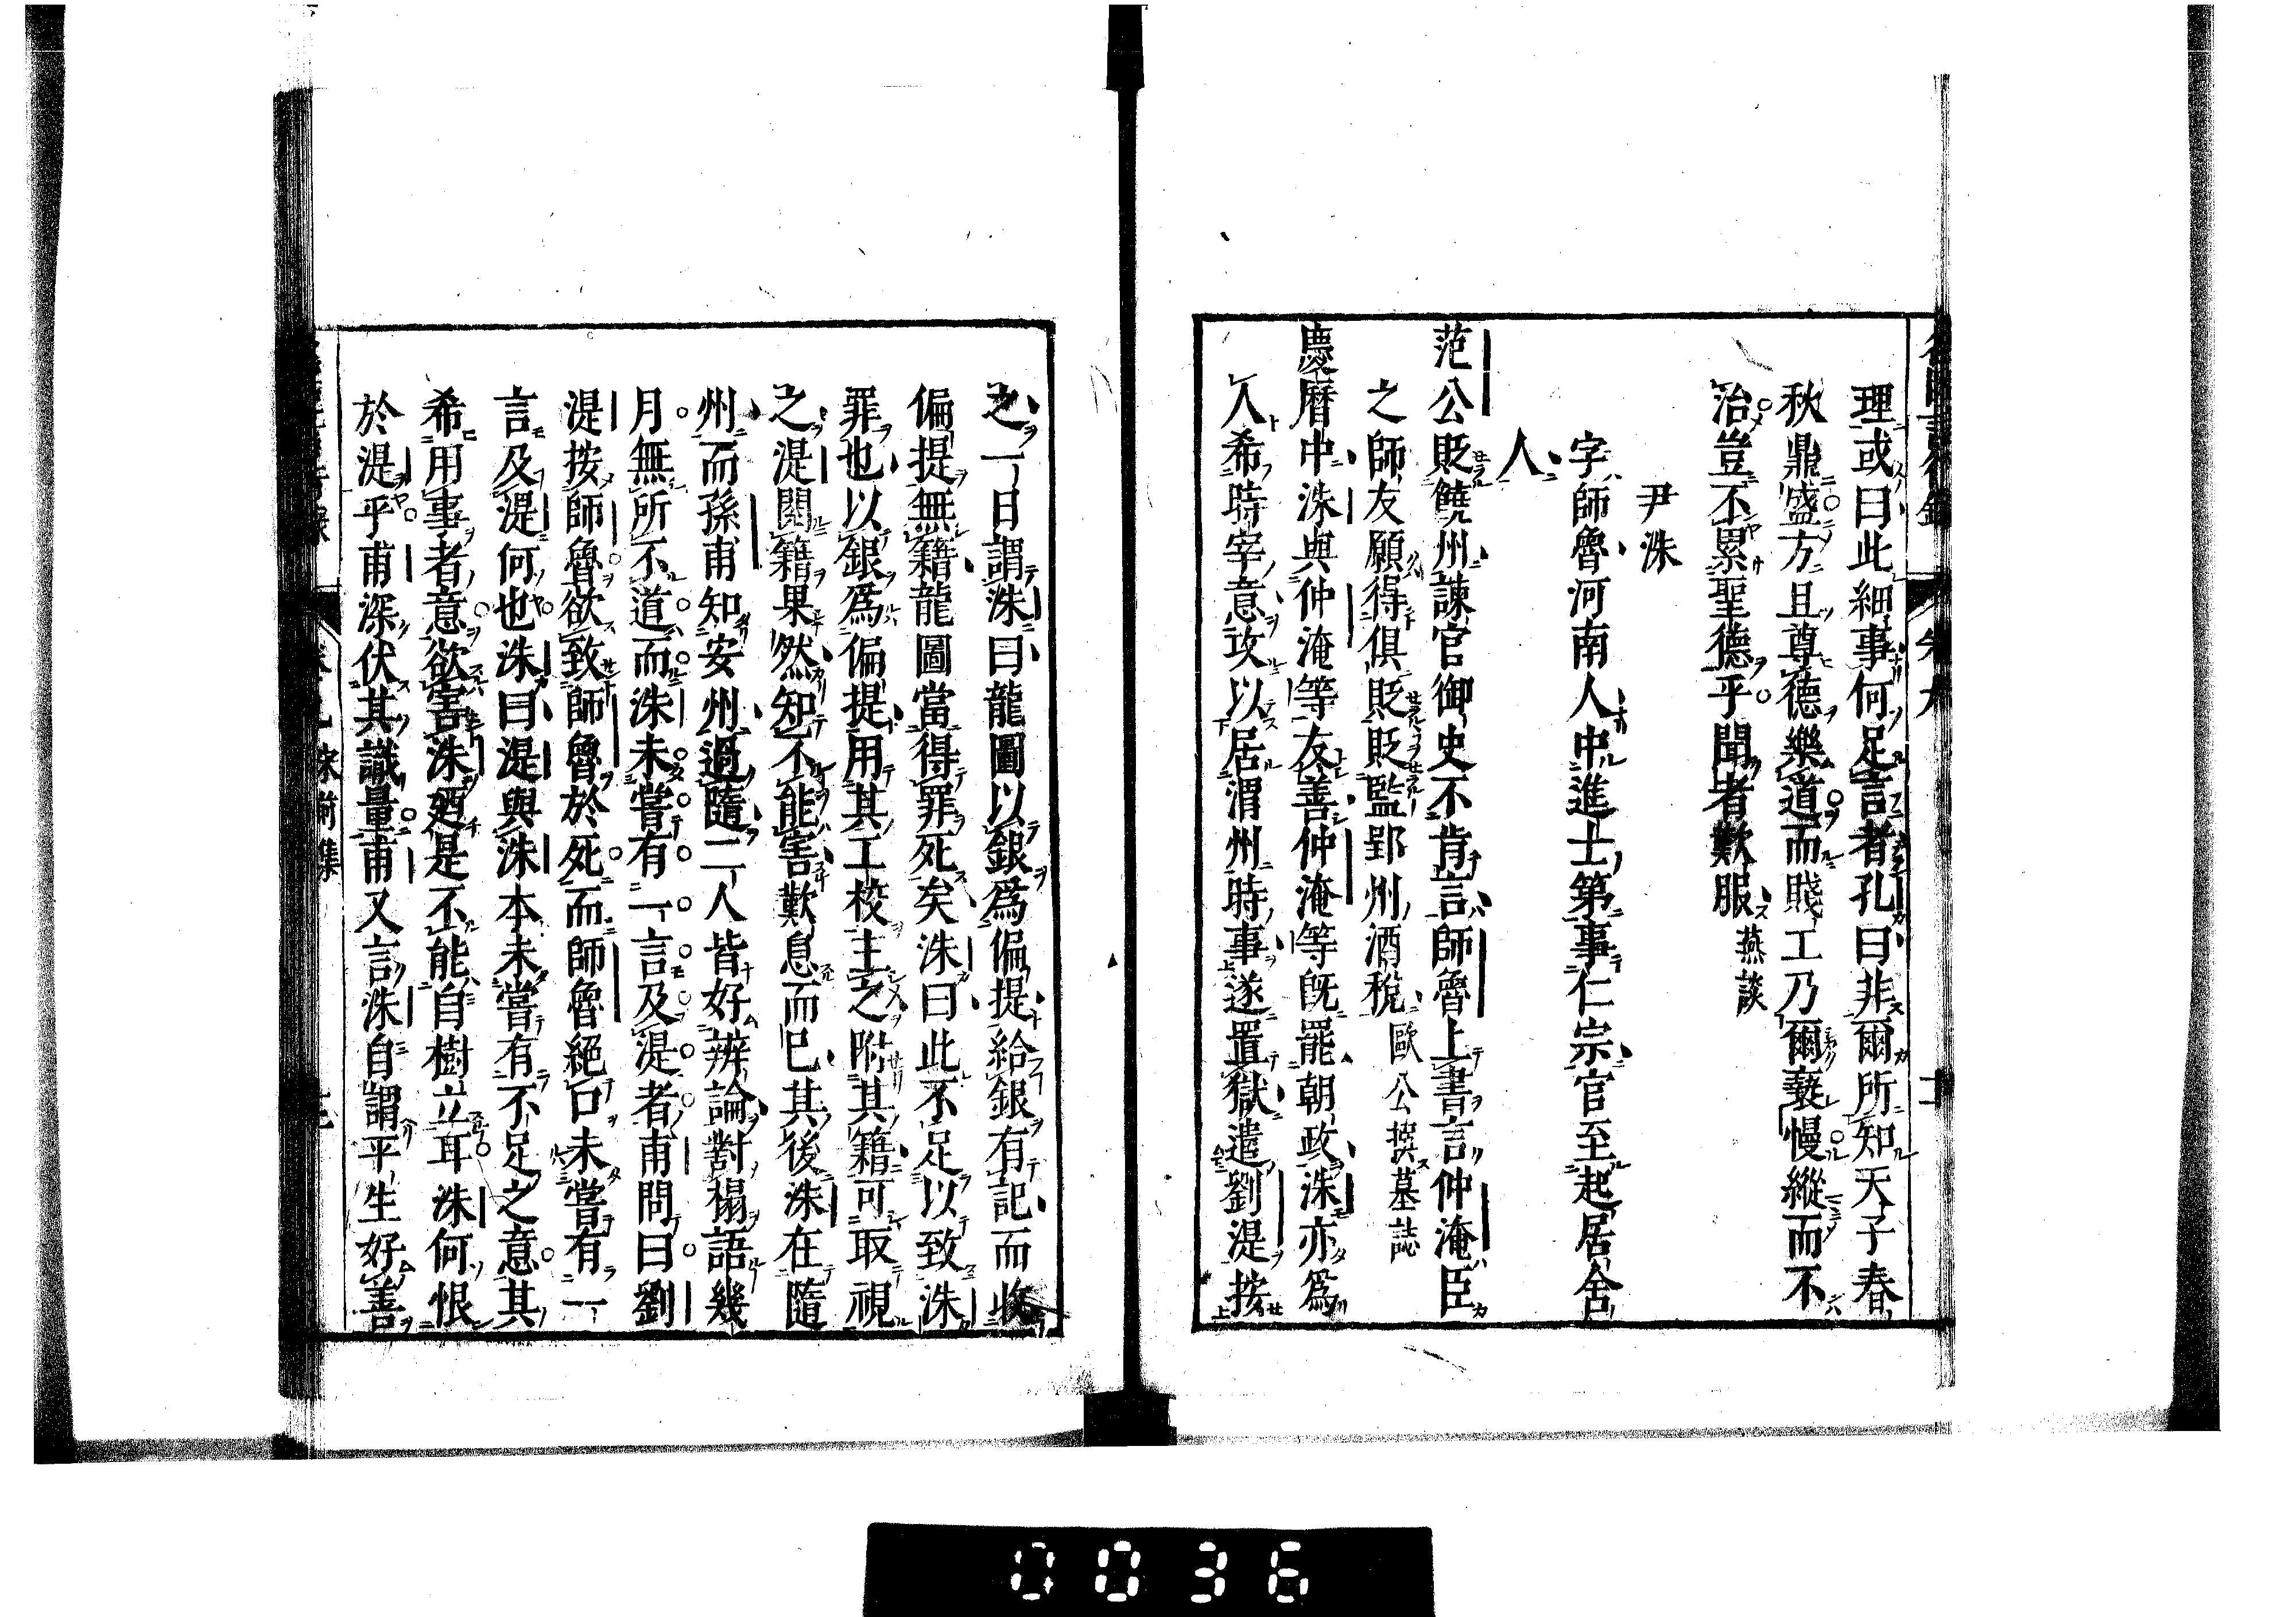 理或曰此細事何足言者孔曰非爾所知天子春
秋鼎盛方且尊德樂道而賤工乃爾褻慢縱而不
治豈不累聖德乎聞者歎服燕談
尹洙
字師魯河南人中進士第事仁宗官至起居舍
人
范公貶饒州諫官御史不肯言師魯上書言仲淹臣
之師友願得俱貶貶監郢州酒稅歐公撰墓誌
慶曆中洙與仲淹等友善仲淹等既罷朝政洙亦爲
人希時宰意攻以居渭州時事遂置獄遣劉湜按
之一日謂洙曰龍圖以銀爲偏提給銀有記而收
偏提無籍龍圖當得罪死矣洙曰此不足以致洙
罪也以銀爲偏提用其工校主之附其籍可取視
之湜閱籍果然知不能害歎息而已其後洙在隨
州而孫甫知安州過隨二人皆好辨論對榻語幾
月無所不道而洙未嘗有一言及湜者甫問曰劉
湜按師魯欲致師魯於死而師魯絕口未嘗有一
言及湜何也洙曰湜與洙本未嘗有不足之意其
希用事者意欲害洙廼是不能自樹立耳洙何恨
於湜乎甫深伏其識量甫又言洙自謂平生好善
0036